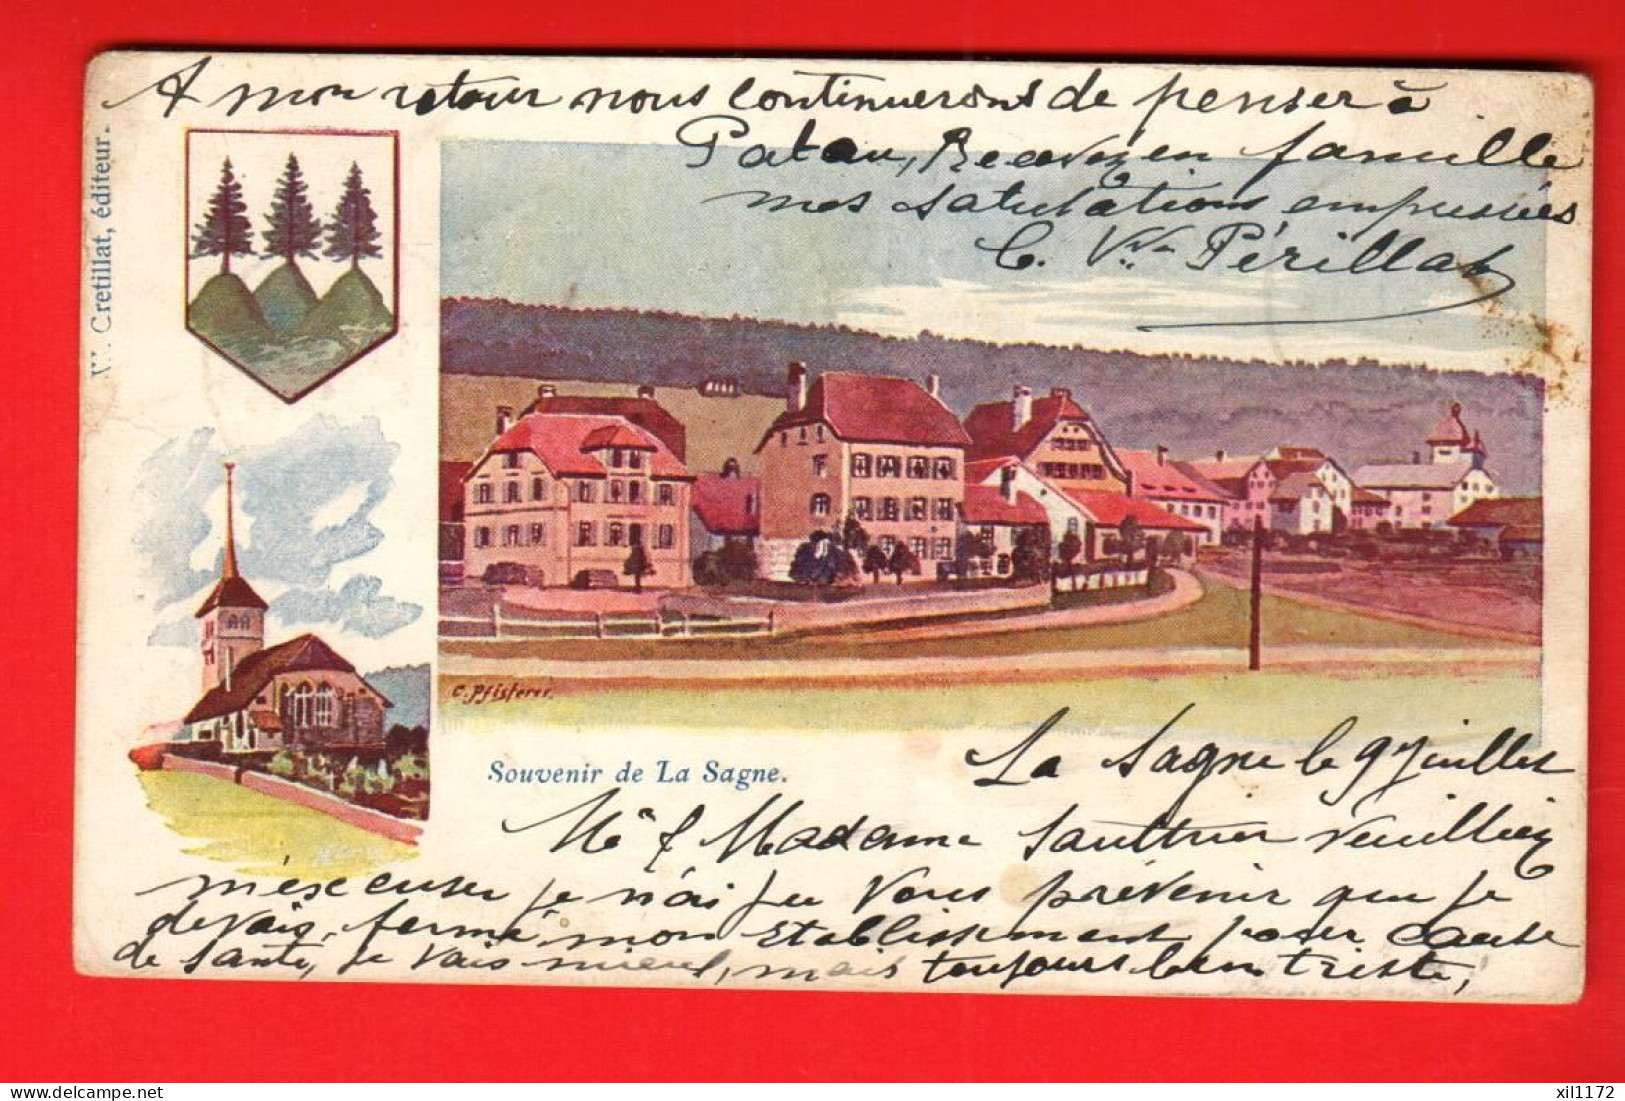 A mon retour nous continuerons de penser à
Patau, Recevez en famille
mes salutations empressées
C. Vve Périllat
Cretillat, éditeur.
C. Pfisterer.
Souvenir de La Sagne.
La Sagne le 9 Juillet
Mr & Madame Gauthier Veuillez
m'éxcuser je n'ai pu Vous prévenir que je
devais fermé mon Etablissement pour Cause
de Santé, je Vais mieux, mais toujours bien triste,
delcampe.net
xil1172